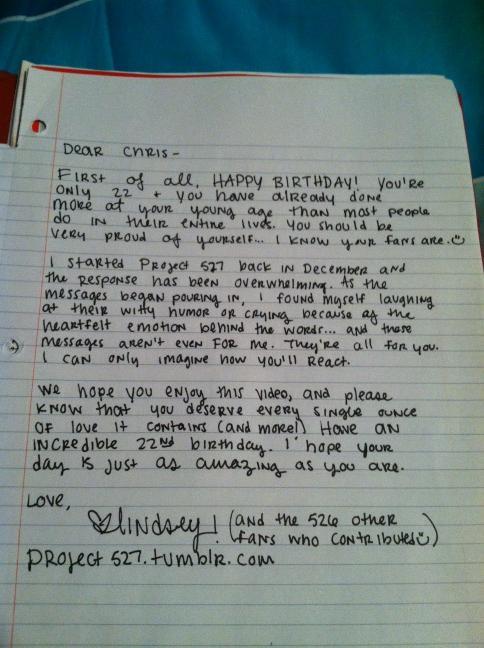 DEAR CHRIS-
FIRST of all, HAPPY BIRTHDAY! YOU'RE
ONLY 22 + YOU HAVE already done
more at your young age than most people
do in their entire lives. You should be
very proud of yourself... I know your fans are.
I started Project 527 back in December and
the response has been overwhelming. As the
messages began pouring in, I found myself laughing
at their witty humor or crying because of the
heartfelt emotion behind the words... and those
messages aren't even for me. They're all for you.
I can only imagine how you'll react.
We hope you enjoy this video, and please
know that you deserve every single ounce
of love it contains (and more!) Have an
incredible 22nd birthday. I hope your
day is just as amazing as you are.
LOVE,
Lindsey! (and the 526 other
fans who contributed)
project527.tumblr.com